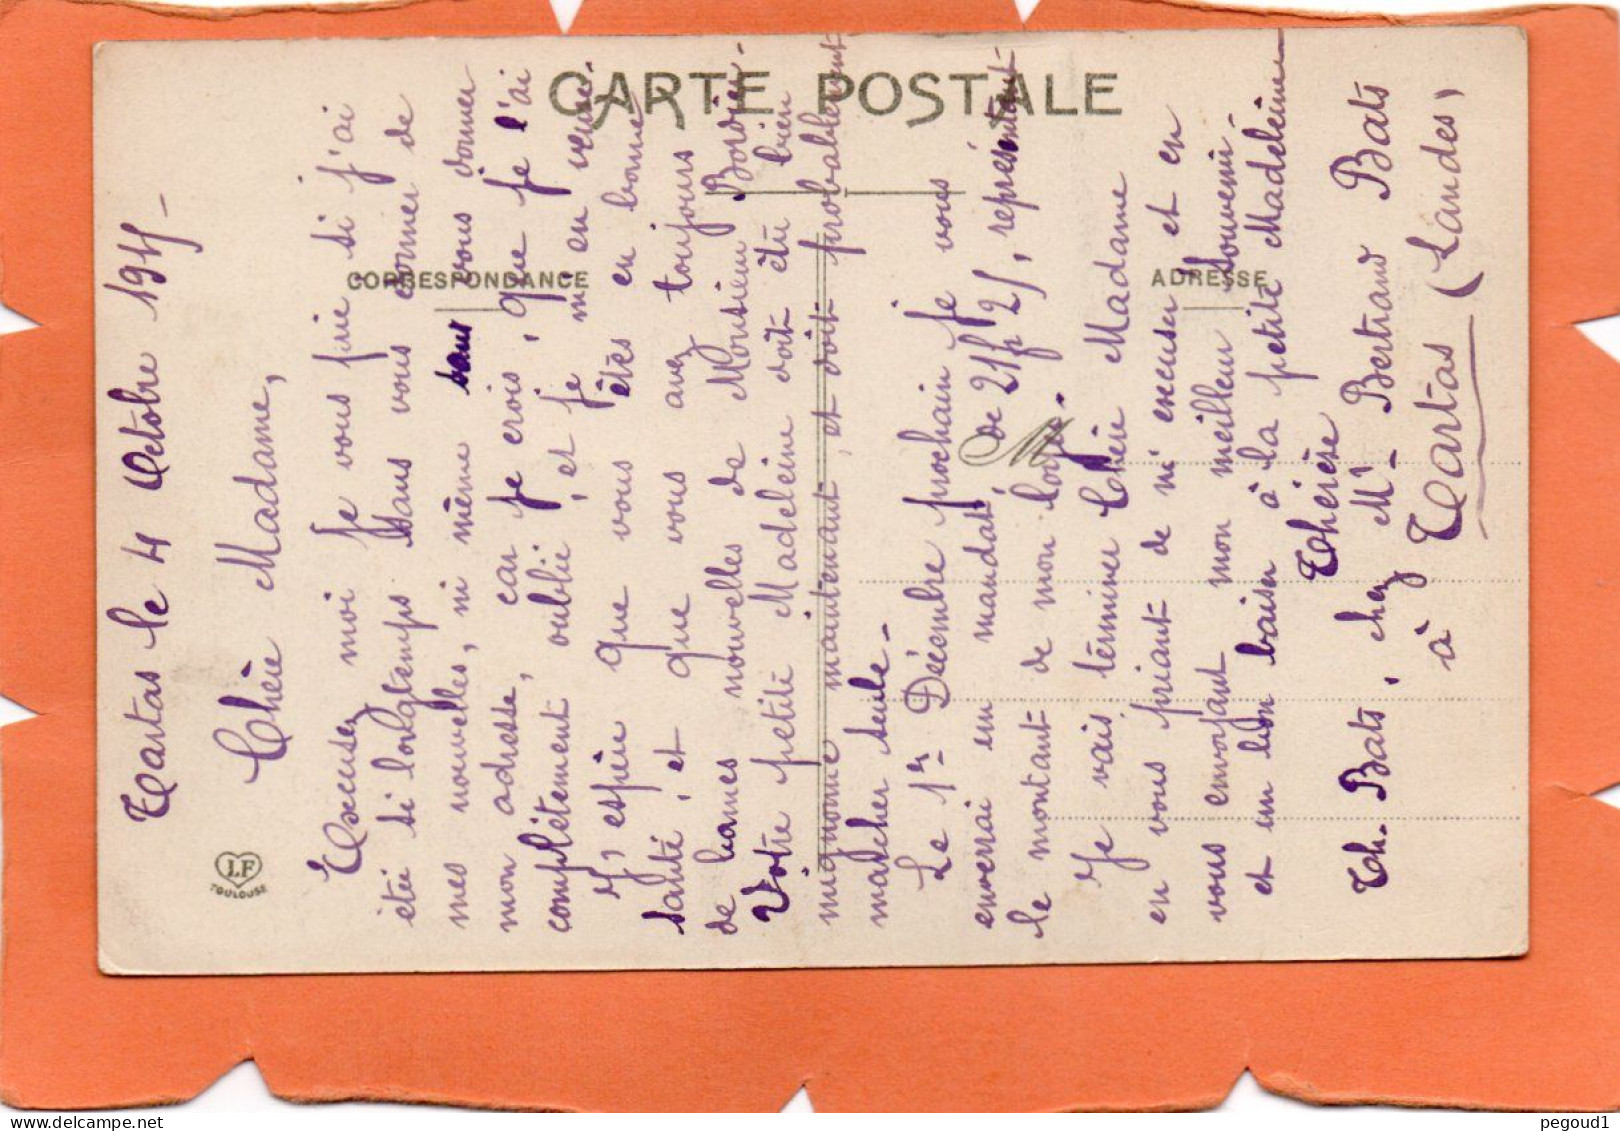 CARTE POSTALE
CORRESPONDANCE
ADRESSE
LF
TOULOUSE
Tartas le 4 Octobre
Chère Madame,
Excusez moi je vous prie si j'ai
étéi si longtemps sans vous donner de
mes nouvelles, ni même sans vous donner
mon adresse, car je crois, que je l'ai
complètement oublié, et je m'en venir.
J'espère que vous êtes en bonne
santé, et que vous avez toujours
de bonnes nouvelles de Monsieur Bordier-
Votre petite Madeleine doit être bien
mignonne maintenant, et doit probablement
marcher seule-
Le 1er Décembre prochain je vous
enverrai un mandat de 21f 25, représentant
le montant de mon loyer.
Je vais términer Chère Madame
en vous priant de m'excuser et en
vous envoyant mon meilleur souvenir-
et un bon baiser à la petite Madeleine
Thérèse
Th. Bats, chez Mr- Bertrand Bats
à Tartas (Landes)
pegoud1